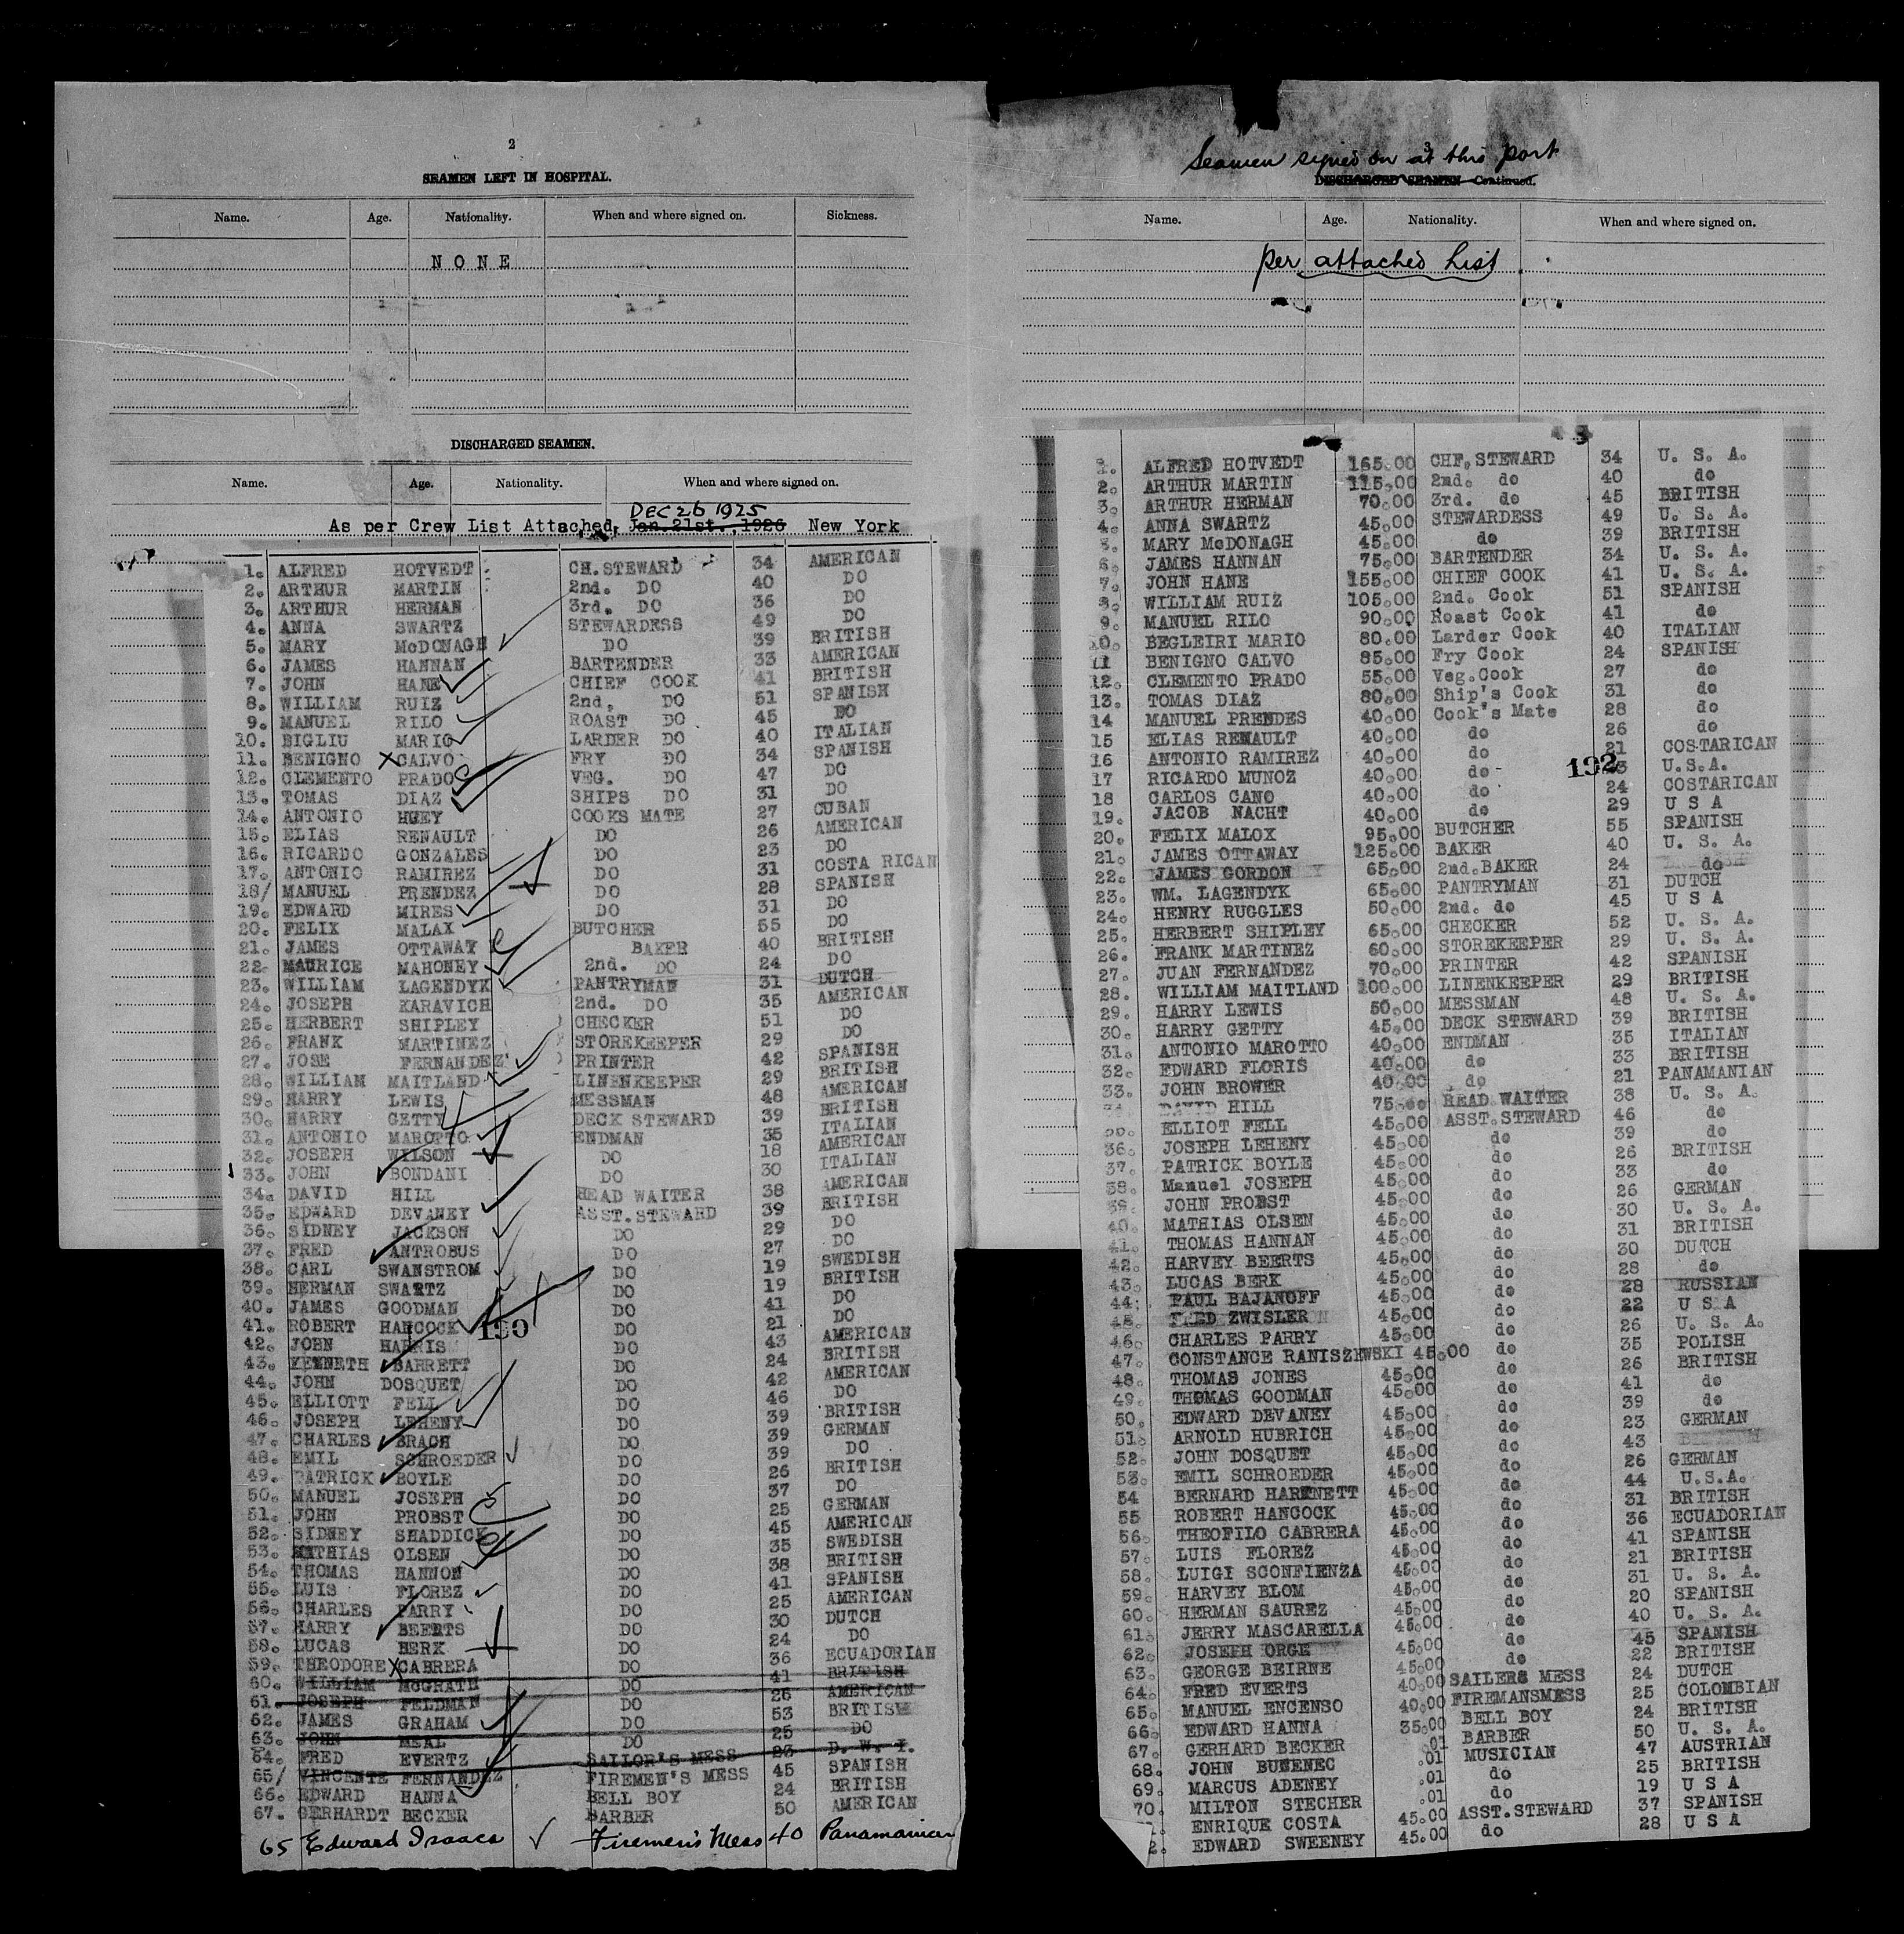 2
SEAMEN LEFT IN HOSPITAL.
Name. Age. Nationality. When and where signed on. Sickness.
NONE
DISCHARGED SEAMEN.
Name. Age. Nationality. When and where signed on.
DEC 26 1925
As per Crew List Attached, Jan.21st., 1926 New York
1. ALFRED HOTVEDT CH.STEWARD 34 AMERICAN
2. ARTHUR MARTIN 2nd. DO 40 DO
3. ARTHUR HERMAN 3rd. DO 36 DO
4. ANNA SWARTZ STEWARDESS 49 DO
5. MARY McDONAGH DO 39 BRITISH
6. JAMES HANNAN BARTENDER 33 AMERICAN
7. JOHN HANE CHIEF COOK 41 BRITISH
8. WILLIAM RUIZ 2nd. DO 51 SPANISH
9. MANUEL RILO ROAST DO 45 DO
10. BIGLIU MARIO LARDER DO 40 ITALIAN
11. BENIGNO CALVO FRY DO 34 SPANISH
12. CLEMENTO PRADO VEG. DO 47 DO
13. TOMAS DIAZ SHIPS DO 31 DO
14. ANTONIO HUEY COOKS MATE 27 CUBAN
15. ELIAS RENAULT DO 26 AMERICAN
16. RICARDO GONZALES DO 23 DO
17. ANTONIO RAMIREZ DO 31 COSTA RICAN
18/ MANUEL PRENDEZ DO 28 SPANISH
19. EDWARD MIRES DO 31 DO
20. FELIX MALAX BUTCHER 55 DO
21. JAMES OTTAWAY BAKER 40 BRITISH
22. MAURICE MAHONEY 2nd. DO 24 DO
23. WILLIAM LAGENDYK PANTRYMAN 31 DUTCH
24. JOSEPH KARAVICH 2nd. DO 35 AMERICAN
25. HERBERT SHIPLEY CHECKER 51 DO
26. FRANK MARTINEZ STOREKEEPER 29 DO
27. JOSE FERNANDEZ PRINTER 42 SPANISH
28. WILLIAM MAITLAND LINENKEEPER 29 BRITISH
29. HARRY LEWIS MESSMAN 48 AMERICAN
30. HARRY GETTY DECK STEWARD 39 BRITISH
31. ANTONIO MAROTTO ENDMAN 35 ITALIAN
32. JOSEPH WILSON DO 18 AMERICAN
33. JOHN BONDANI DO 30 ITALIAN
34. DAVID HILL HEAD WAITER 38 AMERICAN
35. EDWARD DEVANEY ASST.STEWARD 39 BRITISH
36. SIDNEY JACKSON DO 29 DO
37. FRED ANTROBUS DO 27 DO
38. CARL SWANSTROM DO 19 SWEDISH
39. HERMAN SWARTZ DO 19 BRITISH
40. JAMES GOODMAN DO 41 DO
41. ROBERT HANCOCK DO 21 DO
190
42. JOHN HARRIS DO 43 AMERICAN
43. KENNETH BARRETT DO 24 BRITISH
44. JOHN DOSQUET DO 42 AMERICAN
45. ELLIOTT FELL DO 46 DO
46. JOSEPH LEHENY DO 39 BRITISH
47. CHARLES BRACH DO 39 GERMAN
48. EMIL SCHROEDER DO 39 DO
49. PATRICK BOYLE DO 26 BRITISH
50. MANUEL JOSEPH DO 37 DO
51. JOHN PROBST DO 25 GERMAN
52. SIDNEY SHADDICK DO 45 AMERICAN
53. MATHIAS OLSEN DO 35 SWEDISH
54. THOMAS HANNON DO 38 BRITISH
55. LUIS FLOREZ DO 41 SPANISH
56. CHARLES PARRY DO 25 AMERICAN
57. HARRY BEERTS DO 30 DUTCH
58. LUCAS BERK DO 24 DO
59. THEODORE CABRERA DO 36 ECUADORIAN
60. WILLIAM MCGRATH DO 41 BRITISH
61. JOSEPH FELDMAN DO 26 AMERICAN
62. JAMES GRAHAM DO 53 BRITISH
63. JOHN MEAL DO 25 DO
64. FRED EVERTZ SAILOR'S MESS 23 D. W. I.
65/ VINCENTE FERNANDEZ FIREMEN'S MESS 45 SPANISH
66. EDWARD HANNA BELL BOY 24 BRITISH
67. GERHARDT BECKER BARBER 50 AMERICAN
65 Edward Isaacs Firemen's Mess 40 Panamanian
3
Seamen signed on at this port
DISCHARGED SEAMEN—Continued.
Name. Age. Nationality. When and where signed on.
per attached List
1. ALFRED HOTVEDT 165.00 CHF.STEWARD 34 U. S. A.
2. ARTHUR MARTIN 115.00 2nd. do 40 do
3. ARTHUR HERMAN 70.00 3rd. do 45 BRITISH
4. ANNA SWARTZ 45.00 STEWARDESS 49 U. S. A.
5. MARY McDONAGH 45.00 do 39 BRITISH
6. JAMES HANNAN 75.00 BARTENDER 34 U. S. A.
7. JOHN HANE 155.00 CHIEF COOK 41 U. S. A.
8. WILLIAM RUIZ 105.00 2nd. Cook 51 SPANISH
9. MANUEL RILO 90.00 Roast Cook 41 do
10. BEGLEIRI MARIO 80.00 Larder Cook 40 ITALIAN
11 BENIGNO CALVO 85.00 Fry Cook 24 SPANISH
12. CLEMENTO PRADO 55.00 Veg.Cook 27 do
13. TOMAS DIAZ 80.00 Ship's Cook 31 do
14 MANUEL PRENDES 40.00 Cook's Mate 28 do
15 ELIAS RENAULT 40.00 do 26 do
16 ANTONIO RAMIREZ 40.00 do 21 COSTARICAN
192
17 RICARDO MUNOZ 40.00 do U.S.A.
18 CARLOS CANO 40.00 do 24 COSTARICAN
19. JACOB NACHT 40.00 do 29 U S A
20. FELIX MALOX 95.00 BUTCHER 55 SPANISH
21. JAMES OTTAWAY 125.00 BAKER 40 U. S. A.
22. JAMES GORDON 65.00 2nd.BAKER 24 do
23. WM. LAGENDYK 65.00 PANTRYMAN 31 DUTCH
24. HENRY RUGGLES 50.00 2nd. do 45 U S A
25. HERBERT SHIPLEY 65.00 CHECKER 52 U. S. A.
26. FRANK MARTINEZ 60.00 STOREKEEPER 29 U. S. A.
27. JUAN FERNANDEZ 70.00 PRINTER 42 SPANISH
28. WILLIAM MAITLAND 100.00 LINENKEEPER 29 BRITISH
29. HARRY LEWIS 50.00 MESSMAN 48 U. S. A.
30. HARRY GETTY 45.00 DECK STEWARD 39 BRITISH
31. ANTONIO MAROTTO 40.00 ENDMAN 35 ITALIAN
32. EDWARD FLORIS 40.00 do 33 BRITISH
33. JOHN BROWER 40.00 do 21 PANAMANIAN
DAVID HILL 75.00 HEAD WAITER 38 U. S. A.
ELLIOT FELL 45.00 ASST.STEWARD 46 do
36. JOSEPH LEHENY 45.00 do 39 do
37. PATRICK BOYLE 45.00 do 26 BRITISH
38. Manuel JOSEPH 45.00 do 33 do
39. JOHN PROBST 45.00 do 26 GERMAN
40. MATHIAS OLSEN 45.00 do 30 U. S. A.
41. THOMAS HANNAN 45.00 do 31 BRITISH
42. HARVEY BEERTS 45.00 do 30 DUTCH
43. LUCAS BERK 45.00 do 28 do
44. PAUL BAJANOFF 45.00 do 28 RUSSIAN
45. FRED ZWISLER 45.00 do 22 U S A
46. CHARLES PARRY 45.00 do 26 U. S. A.
47. CONSTANCE RANISZEWSKI 45.00 do 35 POLISH
48. THOMAS JONES 45.00 do 26 BRITISH
49. THOMAS GOODMAN 45.00 do 41 do
50. EDWARD DEVANEY 45.00 do 39 do
51. ARNOLD HUBRICH 45.00 do 23 GERMAN
52. JOHN DOSQUET 45.00 do 43
53. EMIL SCHROEDER 45.00 do 26 GERMAN
54 BERNARD HARTNETT 45.00 do 44 U.S.A.
55 ROBERT HANCOCK 45.00 do 31 BRITISH
56. THEOFILO CABRERA 45.00 do 36 ECUADORIAN
57. LUIS FLOREZ 45.00 do 41 SPANISH
58. LUIGI SCONFIENZA 45.00 do 21 BRITISH
59. HARVEY BLOM 45.00 do 31 U. S. A.
60. HERMAN SAUREZ 45.00 do 20 SPANISH
61. JERRY MASCARELLA 45.00 do 40 U. S. A.
62. JOSEPH ORGE 45.00 do 45 SPANISH
63. GEORGE BEIRNE 45.00 do 22 BRITISH
64. FRED EVERTS 40.00 SAILERS MESS 24 DUTCH
65. MANUEL ENCENSO 40.00 FIREMANSMESS 25 COLOMBIAN
66. EDWARD HANNA 35.00 BELL BOY 24 BRITISH
67. GERHARD BECKER .01 BARBER 50 U. S. A.
68. JOHN BUNENEC .01 MUSICIAN 47 AUSTRIAN
69. MARCUS ADENEY .01 do 25 BRITISH
70. MILTON STECHER .01 do 19 U S A
ENRIQUE COSTA 45.00 ASST.STEWARD 37 SPANISH
2. EDWARD SWEENEY 45.00 do 28 U S A